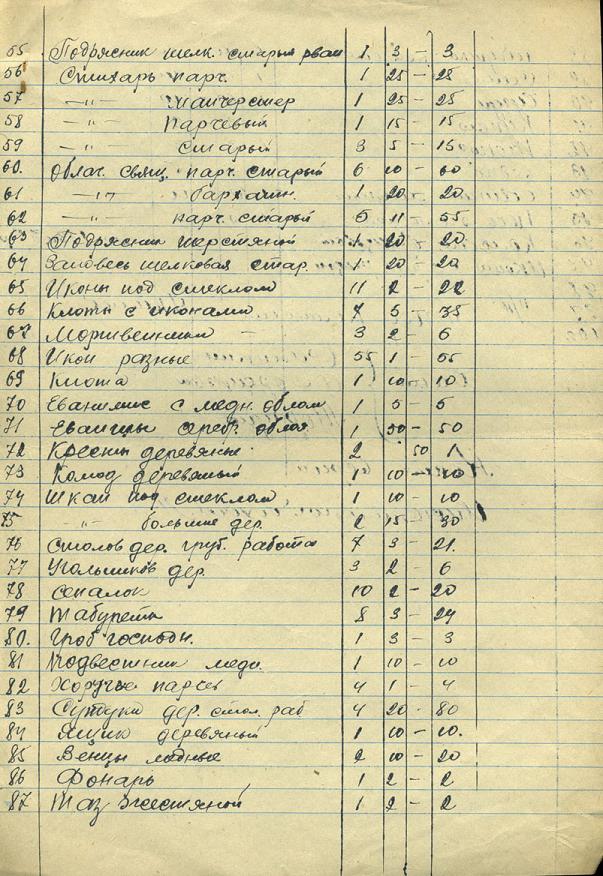 55 Подрясник шелк. старый рван 1 3 – 3.
56 Стихарь парч. 1 25 – 25
57 –"– манчестер 1 25 – 25
58 –"– парчевый 1 15 – 15
59 –"– старый 3 5 – 15
60. Облач. свящ. парч. старый 6 10 – 60
61 –"– бархатн. 1 20 – 20
62 –"– парч. старый 5 11 55
63 Подрясник шерстяной 1 20 20
64 Зановесь шелковая стар. 1 20 – 20
65 Иконы под стеклом 11 2 – 22
66 Клоты с иконами 7 5 – 35
67 3 2 – 6
68 Икон разные 55 1 – 55
69 Киота 1 10 – 10
70 Еванилие с медн. облом 1 5 – 5
71 сереб. 1 50 – 50
72 Кресты деревяные 2 50 1
73 Комод деревяный 1 10 – 10
74 Шкап под стеклом 1 10 – 10
75 –"– большие дер. 2 15 – 30
76 Столов дер. груб. работа 7 3 – 21.
77 Угольников дер. 3 2 – 6
78 10 2 – 20
79 Табуреты 8 3 – 24
80. Гроб господн. 1 3 – 3
81 Подвестник медн. 1 10 – 10
82 Хоругве парчев 4 1 – 4
83 Сундуки дер. стол. раб 4 20 – 80
84 Ящик деревяный 1 10 – 10.
85 Венцы медные 2 10 – 20
86 Фонарь 1 2 – 2
87 Таз жестяной 1 2 – 2